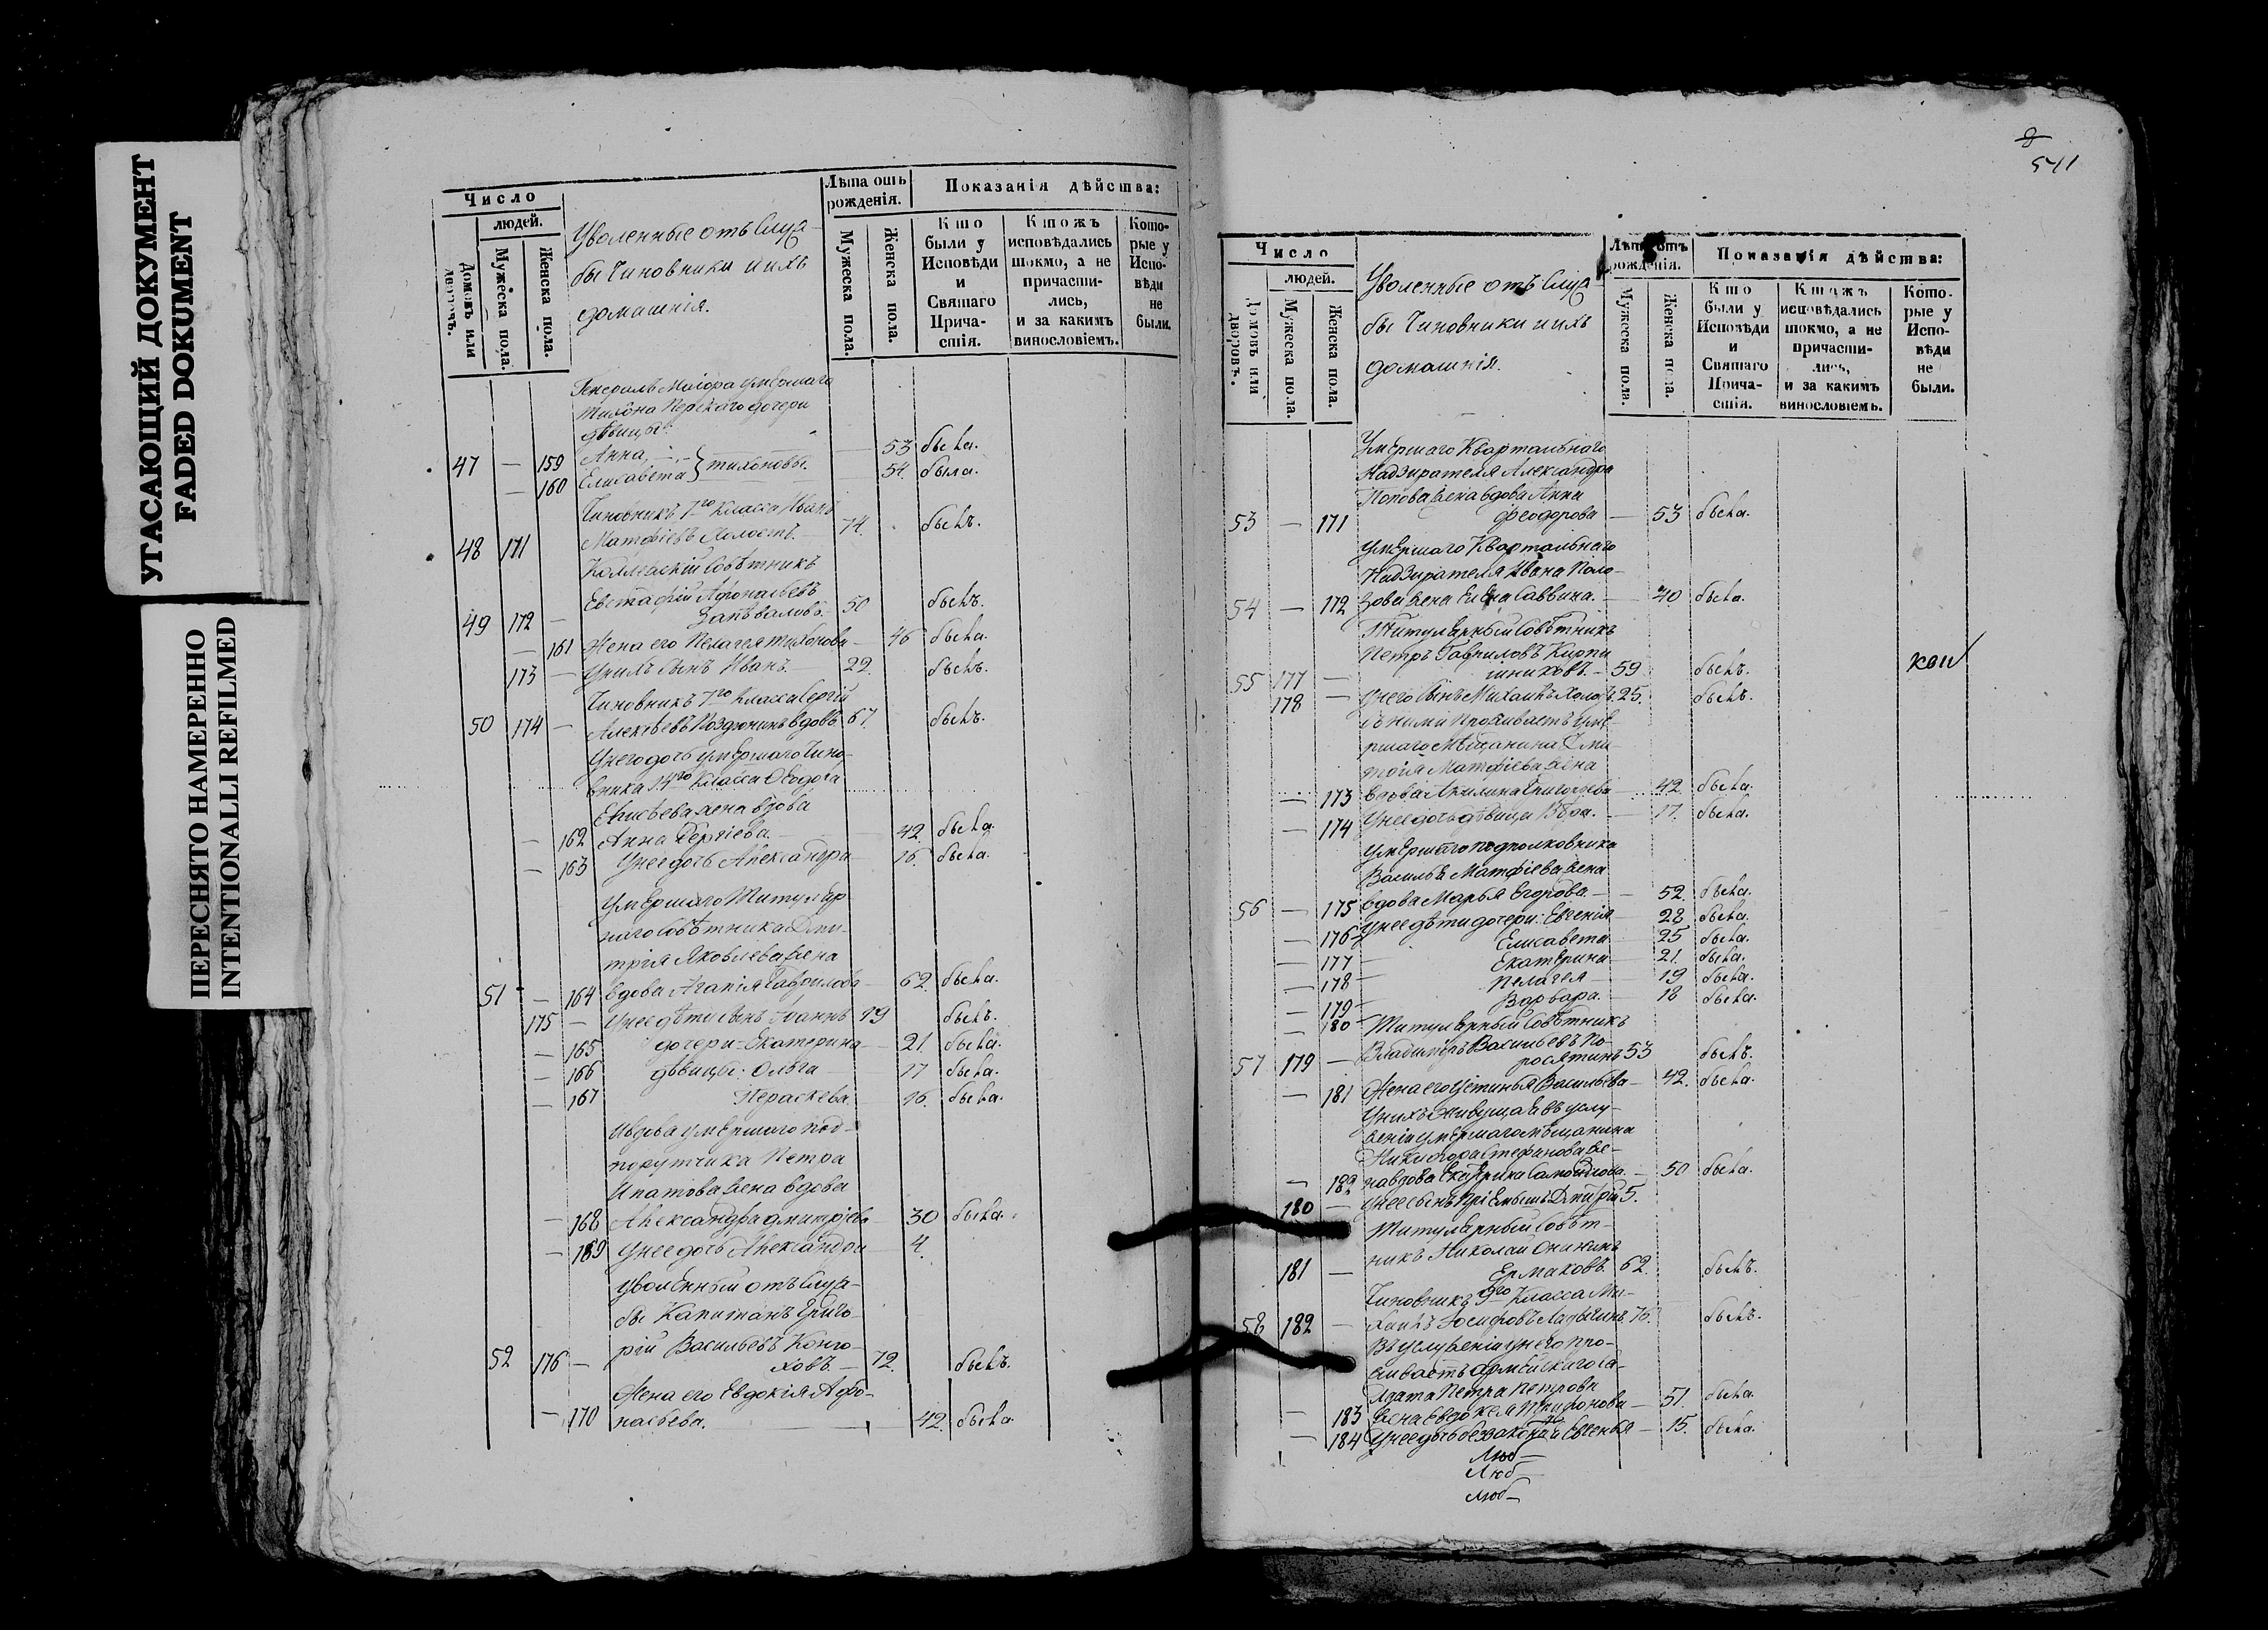 УГАСАЮЩИЙ ДОКУМЕНТ
FADED DOKUMENT
ПЕРЕСНЯТО НАМЕРЕННО
INTENTIONALLI REFILMED
Число
людей.
Домовъ или дворовъ.
Мужеска пола.
Женска пола.
Уволенные отъ служ-
бы Чиновники и ихъ
домашнія.
Лѣта отъ рожденія.
Мужеска пола.
Женска пола.
Показанія дѣйства:
Кто были у Исповѣди и Святаго Прича-стія.
Ктожъ исповѣдались токмо, а не причасти-лись, и за какимъ винословіемъ.
Кото-рые у Испо-вѣди не были.
Генералъ Маіора умершаго
Тихона Перскаго дочери
дѣвицы:
47 — 159 Анна, — 53 была.
— 160 Елисавета } Тихоновы. 54. была.
Чиновникъ 7го класса Иванъ
48 171 Матфіевъ Холостъ. — 74. былъ.
Коллежскій Совѣтникъ
Евстафій Афонасьевъ
49 172 — Запѣваловъ. 50 былъ.
— 161 Жена его Пелагея Тихонова — 46 была.
173 — У нихъ сынъ Иванъ. 22. былъ.
Чиновникъ 7го класса Сергій
50 174 — Алексѣевъ Поздюнинъ вдовъ 67. былъ.
У него дочь умершаго Чино-
вника 14го Класса Ѳеодора
Елисѣева жена вдова
— 162 Анна Сергіева. — 42. была.
— 163 У нее дочь Александра — 16. была.
Умершаго Титуляр
наго Совѣтника Дми-
трія Яковлева жена
51 — 164 вдова Агапія Гаврилова — 62. была.
175 — У нее дѣти сынъ Іоаннъ 19 былъ.
— 165 дочери — Екатерина — 21. была.
— 166 дѣвицы: Ольга — 17 была.
— 167 Параскева. 16. была.
Вдова умершаго под-
порутчика Петра
Ипатова жена вдова
— 168 Александра Дмитріева — 30 была.
— 169 У нее дочь Александра — 4.
Уволенный отъ служ-
бы Капитанъ Григо-
рій Васильевъ
52 176 — ховъ. — 72. былъ.
Жена его Евдокія Афо-
— 170 насьева. — 42. была
541
Число
людей.
Домовъ или дворовъ.
Мужеска пола.
Женска пола.
Уволенные отъ служ
бы Чиновники и ихъ
домашнія.
Лѣта отъ рожденія.
Мужеска пола.
Женска пола.
Показанія дѣйства:
Кто были у Исповѣди и Святаго Прича-стія.
Ктожъ исповѣдались токмо, а не причасти-лись, и за какимъ винословіемъ.
Кото-рые у Испо-вѣди не были.
Умершаго Квартальнаго
Надзирателя Александра
Попова жена вдова Анна
53 — 171 Феодорова — 53 была.
Умершаго Квартальнаго
Надзирателя Ивана Поло-
54 — 172 зова жена Елена Саввина. — 40 была.
Титулярный Совѣтникъ
Петръ Гавриловъ Кирпи
55 177 — шниковъ. — 59 былъ.
178 — У него сынъ Михаилъ холостъ 25. былъ.
Съ ними проживаетъ уме-
ршаго Мѣщанина Дми-
трія Матфіева жена
— 173 вдова Акилина Григорьева — 42. была.
— 174 У нее дочь дѣвица Вѣра. — 17. была.
Умершаго подполковника
Василья Матфіева жена
56 — 175 вдова Марья Егорова. — 52. была.
— 176 У нее дѣти дочери: Евгенія — 28 была.
— 177 Елисавета — 25 была.
— 178 Екатерина — 21. была.
— 179 Пелагея — 19 была.
— 180 Варвара. — 18 была.
Титулярный Совѣтникъ
Владимиръ Васильевъ По-
57 179 — росятинъ 53 былъ.
— 181 Жена его Устинья Васильева — 42. была.
У нихъ живущая въ услу-
женіи умершаго мѣщанина
Никифора Стефанова же-
— 182 на вдова Екатерина Самойлова. — 50 была.
180 — У нее сынъ пріемышъ Дмитрій 5.
Титулярный Совѣт-
никъ Николай
181 — Ермаковъ. 62. былъ.
Чиновникъ 9го Класса Ми-
58 182 — хаилъ Іосифовъ Ладыгинъ 76. былъ.
Въ услуженіи у него про-
живаетъ армейскаго со-
лдата Петра Петрова
— 183 жена Евдокея Трифонова — 51. была.
— 184 У нее дочь беззаконная Евгенья — 15. была.
Люб—
Люб—
Люб—